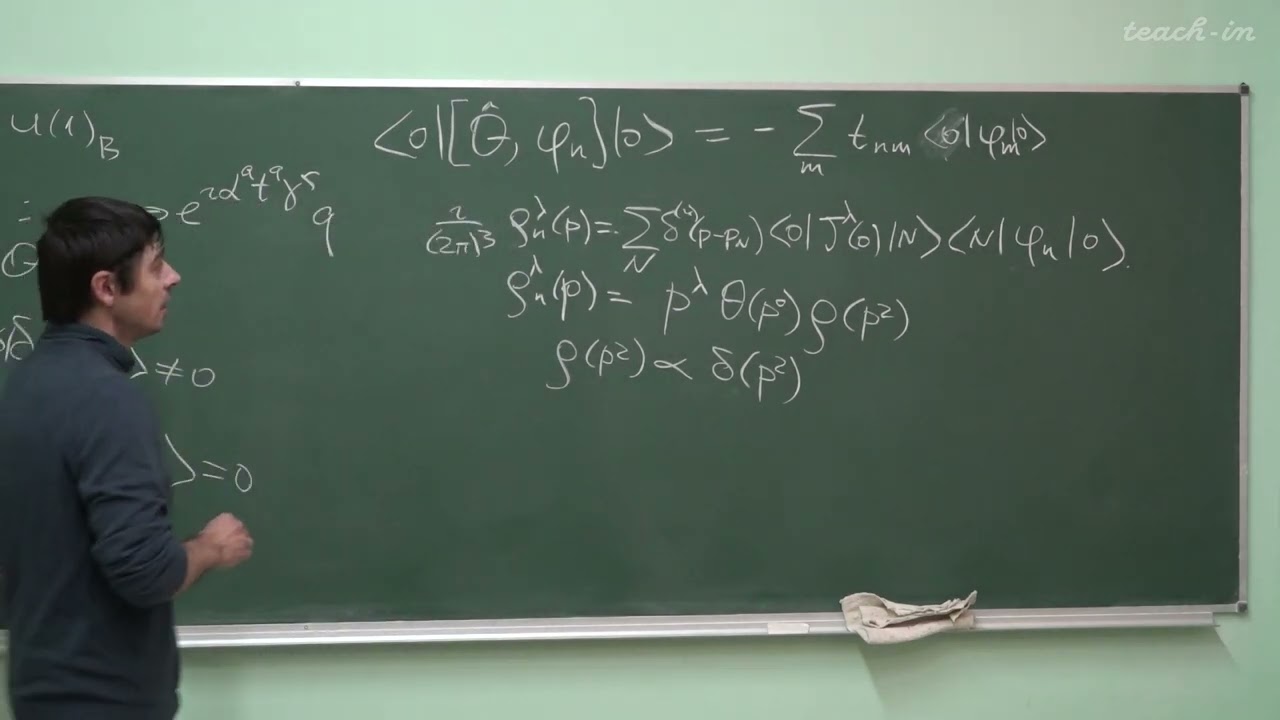 teach-in
U(1)_B
⇒ e^{iα^a t^a γ^5} q
≠ 0
⟩ = 0
⟨0|[Q̂, φ_n]|0⟩ = - ∑_m t_{nm} ⟨0|φ_m|0⟩
i/(2π)^3 ρ_n^λ(p) = ∑_N δ^{(4)}(p-p_N) ⟨0|J^λ(0)|N⟩⟨N|φ_n|0⟩.
ρ_n^λ(p) = p^λ θ(p^0) ρ(p^2)
ρ(p^2) ∝ δ(p^2)